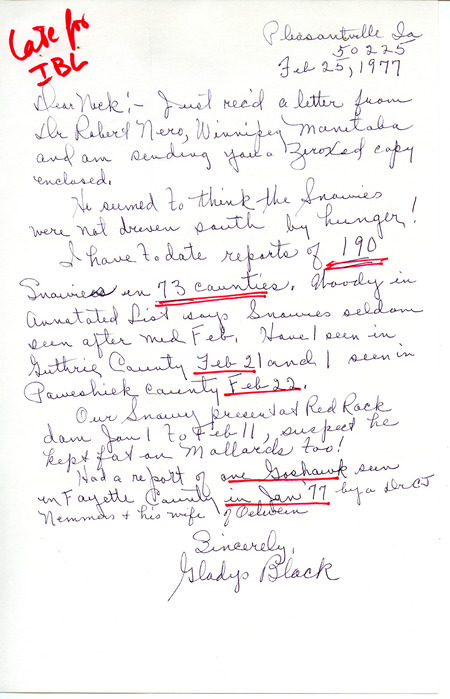 Late for
IBL
Pleasantville Ia
50225
Feb 25, 1977
Dear Nick:- Just rec'd a letter from
Dr Robert Nero, Winnipeg Manitoba
and am sending you a Zeroxed copy
enclosed.
He seemed to think the Snowies
were not driven south by hunger!
I have to date reports of 190
Snowies in 73 counties. Woody in
Annotated List says Snowies seldom
seen after mid Feb. Have 1 seen in
Guthrie County Feb 21 and 1 seen in
Poweshiek county Feb 22.
Our Snowy present at Red Rock
dam Jan 1 to Feb 11, suspect he
kept fat on Mallards too!
Had a report of one Goshawk seen
in Fayette County in Jan '77 by a Dr CJ
Nemmers + his wife of Oelwein
Sincerely,
Gladys Black